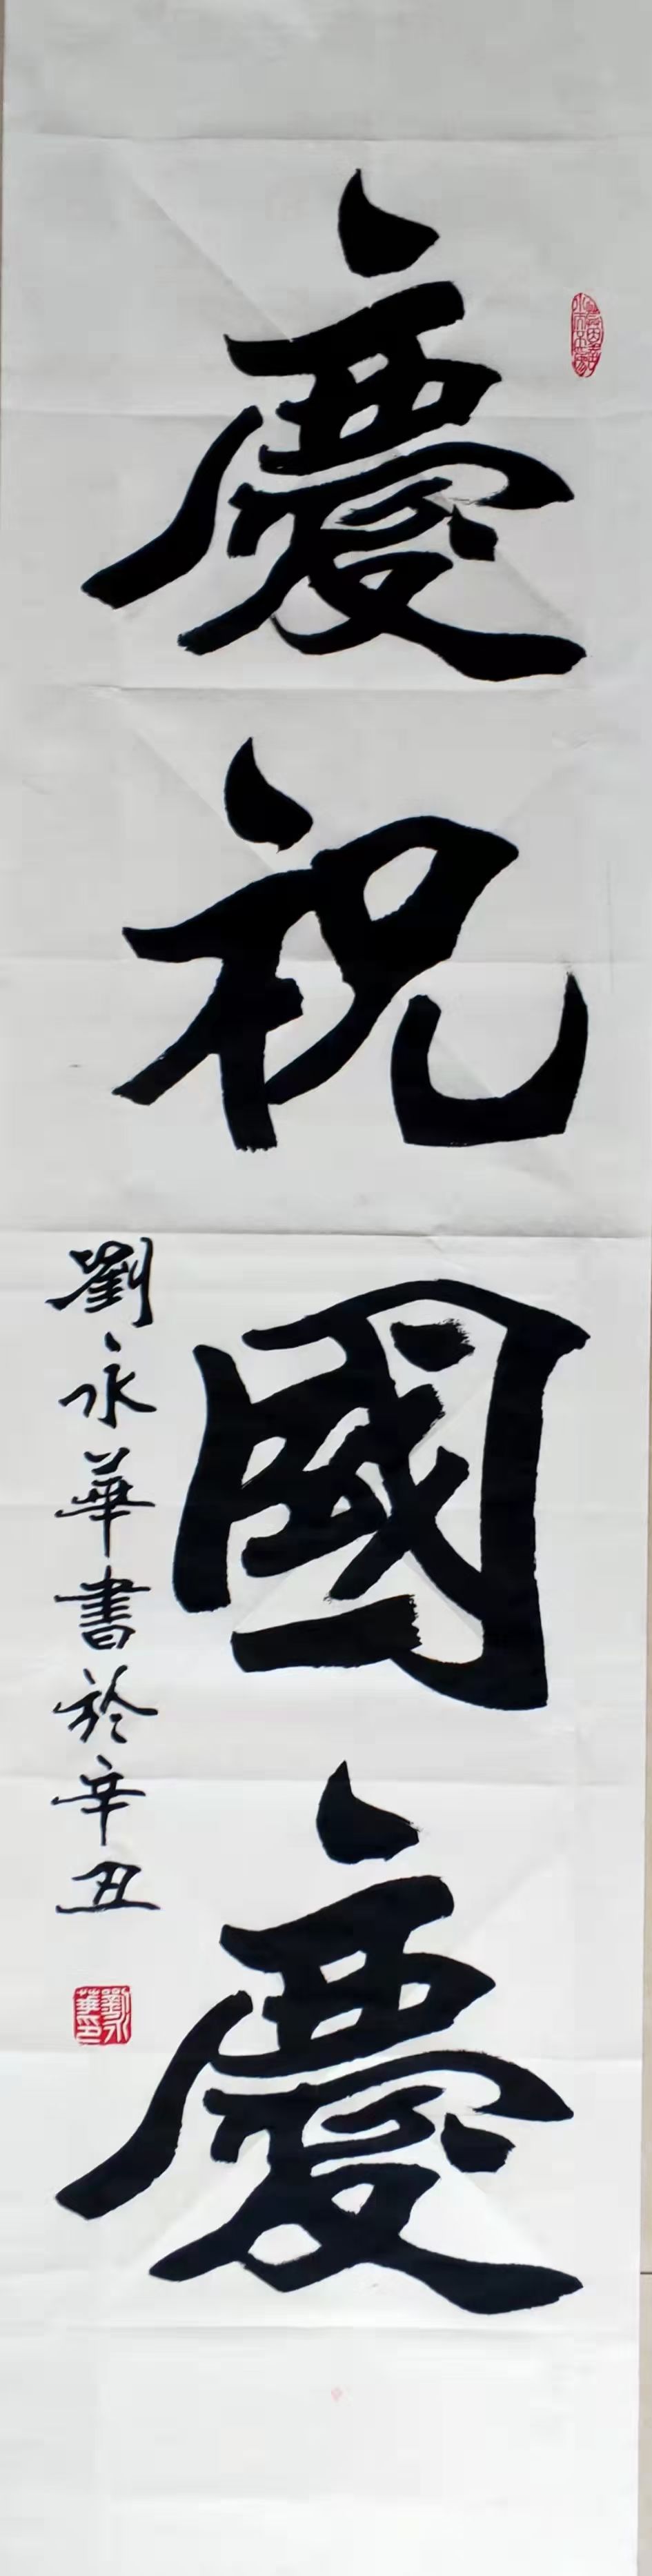 慶祝國慶
劉永華書於辛丑
劉永華印